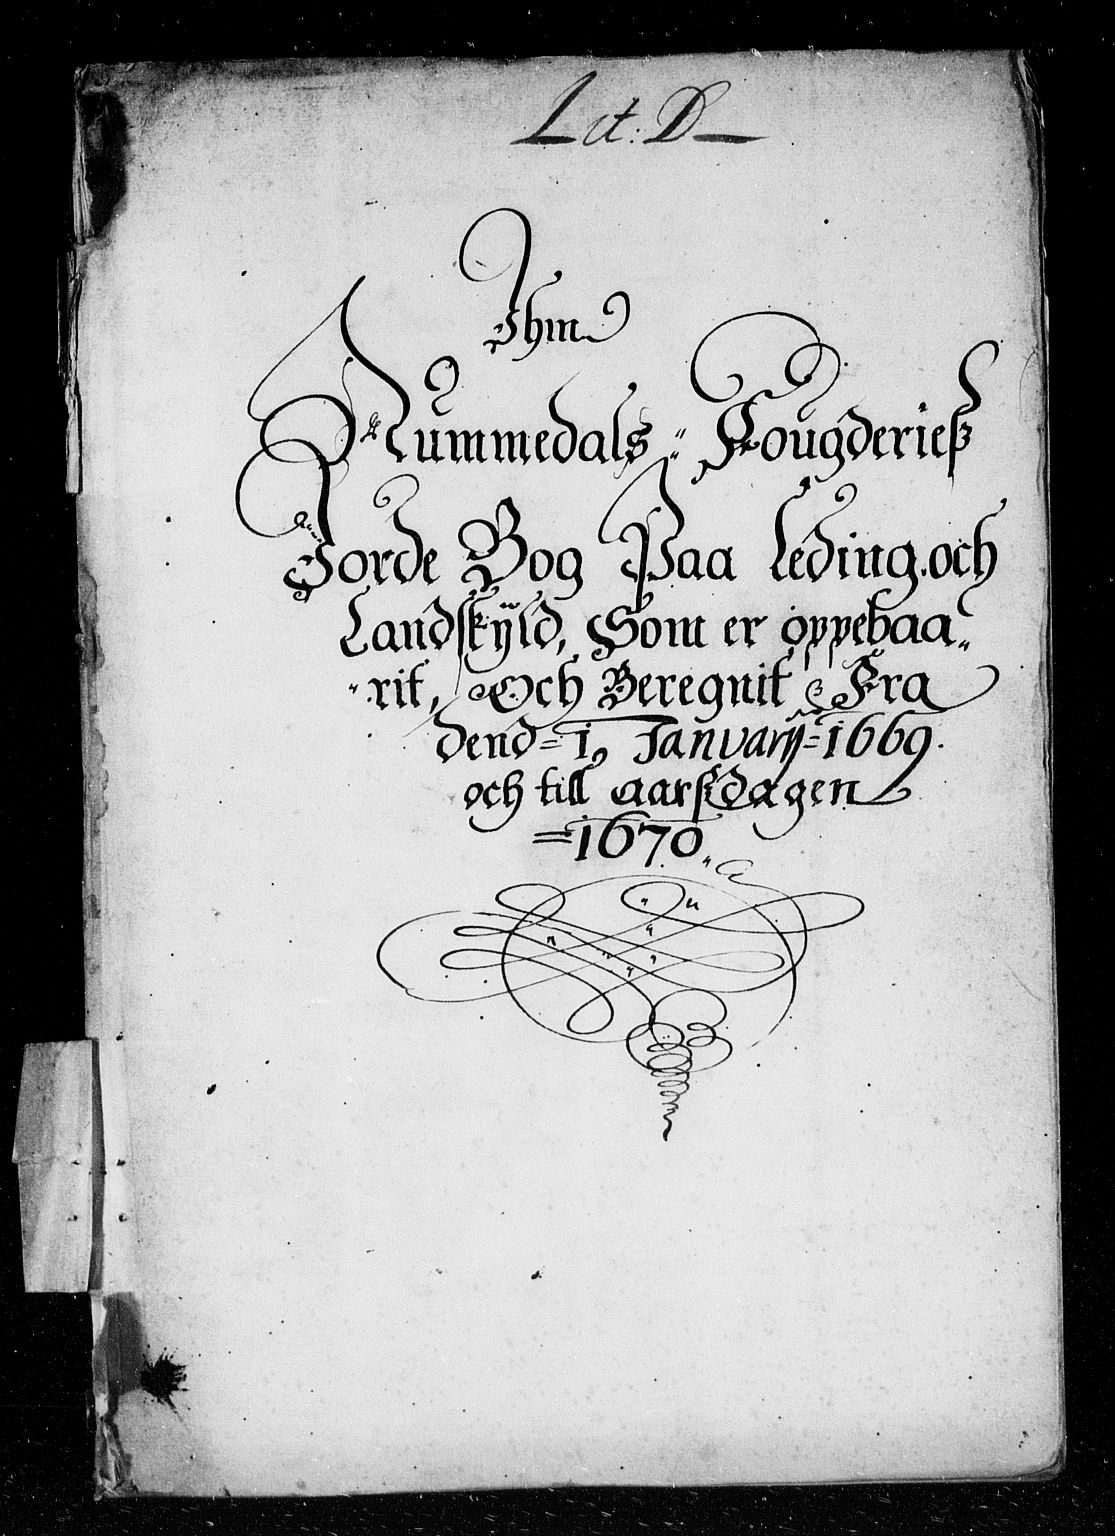 Lit: D
Ihm
Nummedals Fougderieß
Jorde Bog Paa Leding och
Landskÿld, Som er oppebaa„
„rit, Och Beregnit Fra
dend=1, Januarij=1669.
och till aarßdagen
=1670„